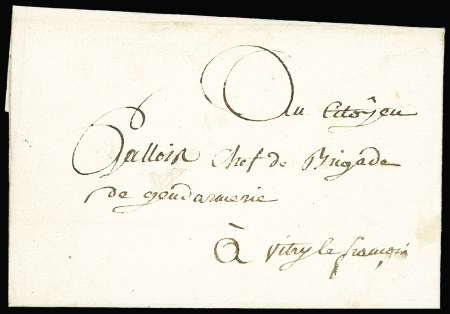 Au Citoyen
Gallois Chef de Brigade
de gendarmerie
à vitry le françois